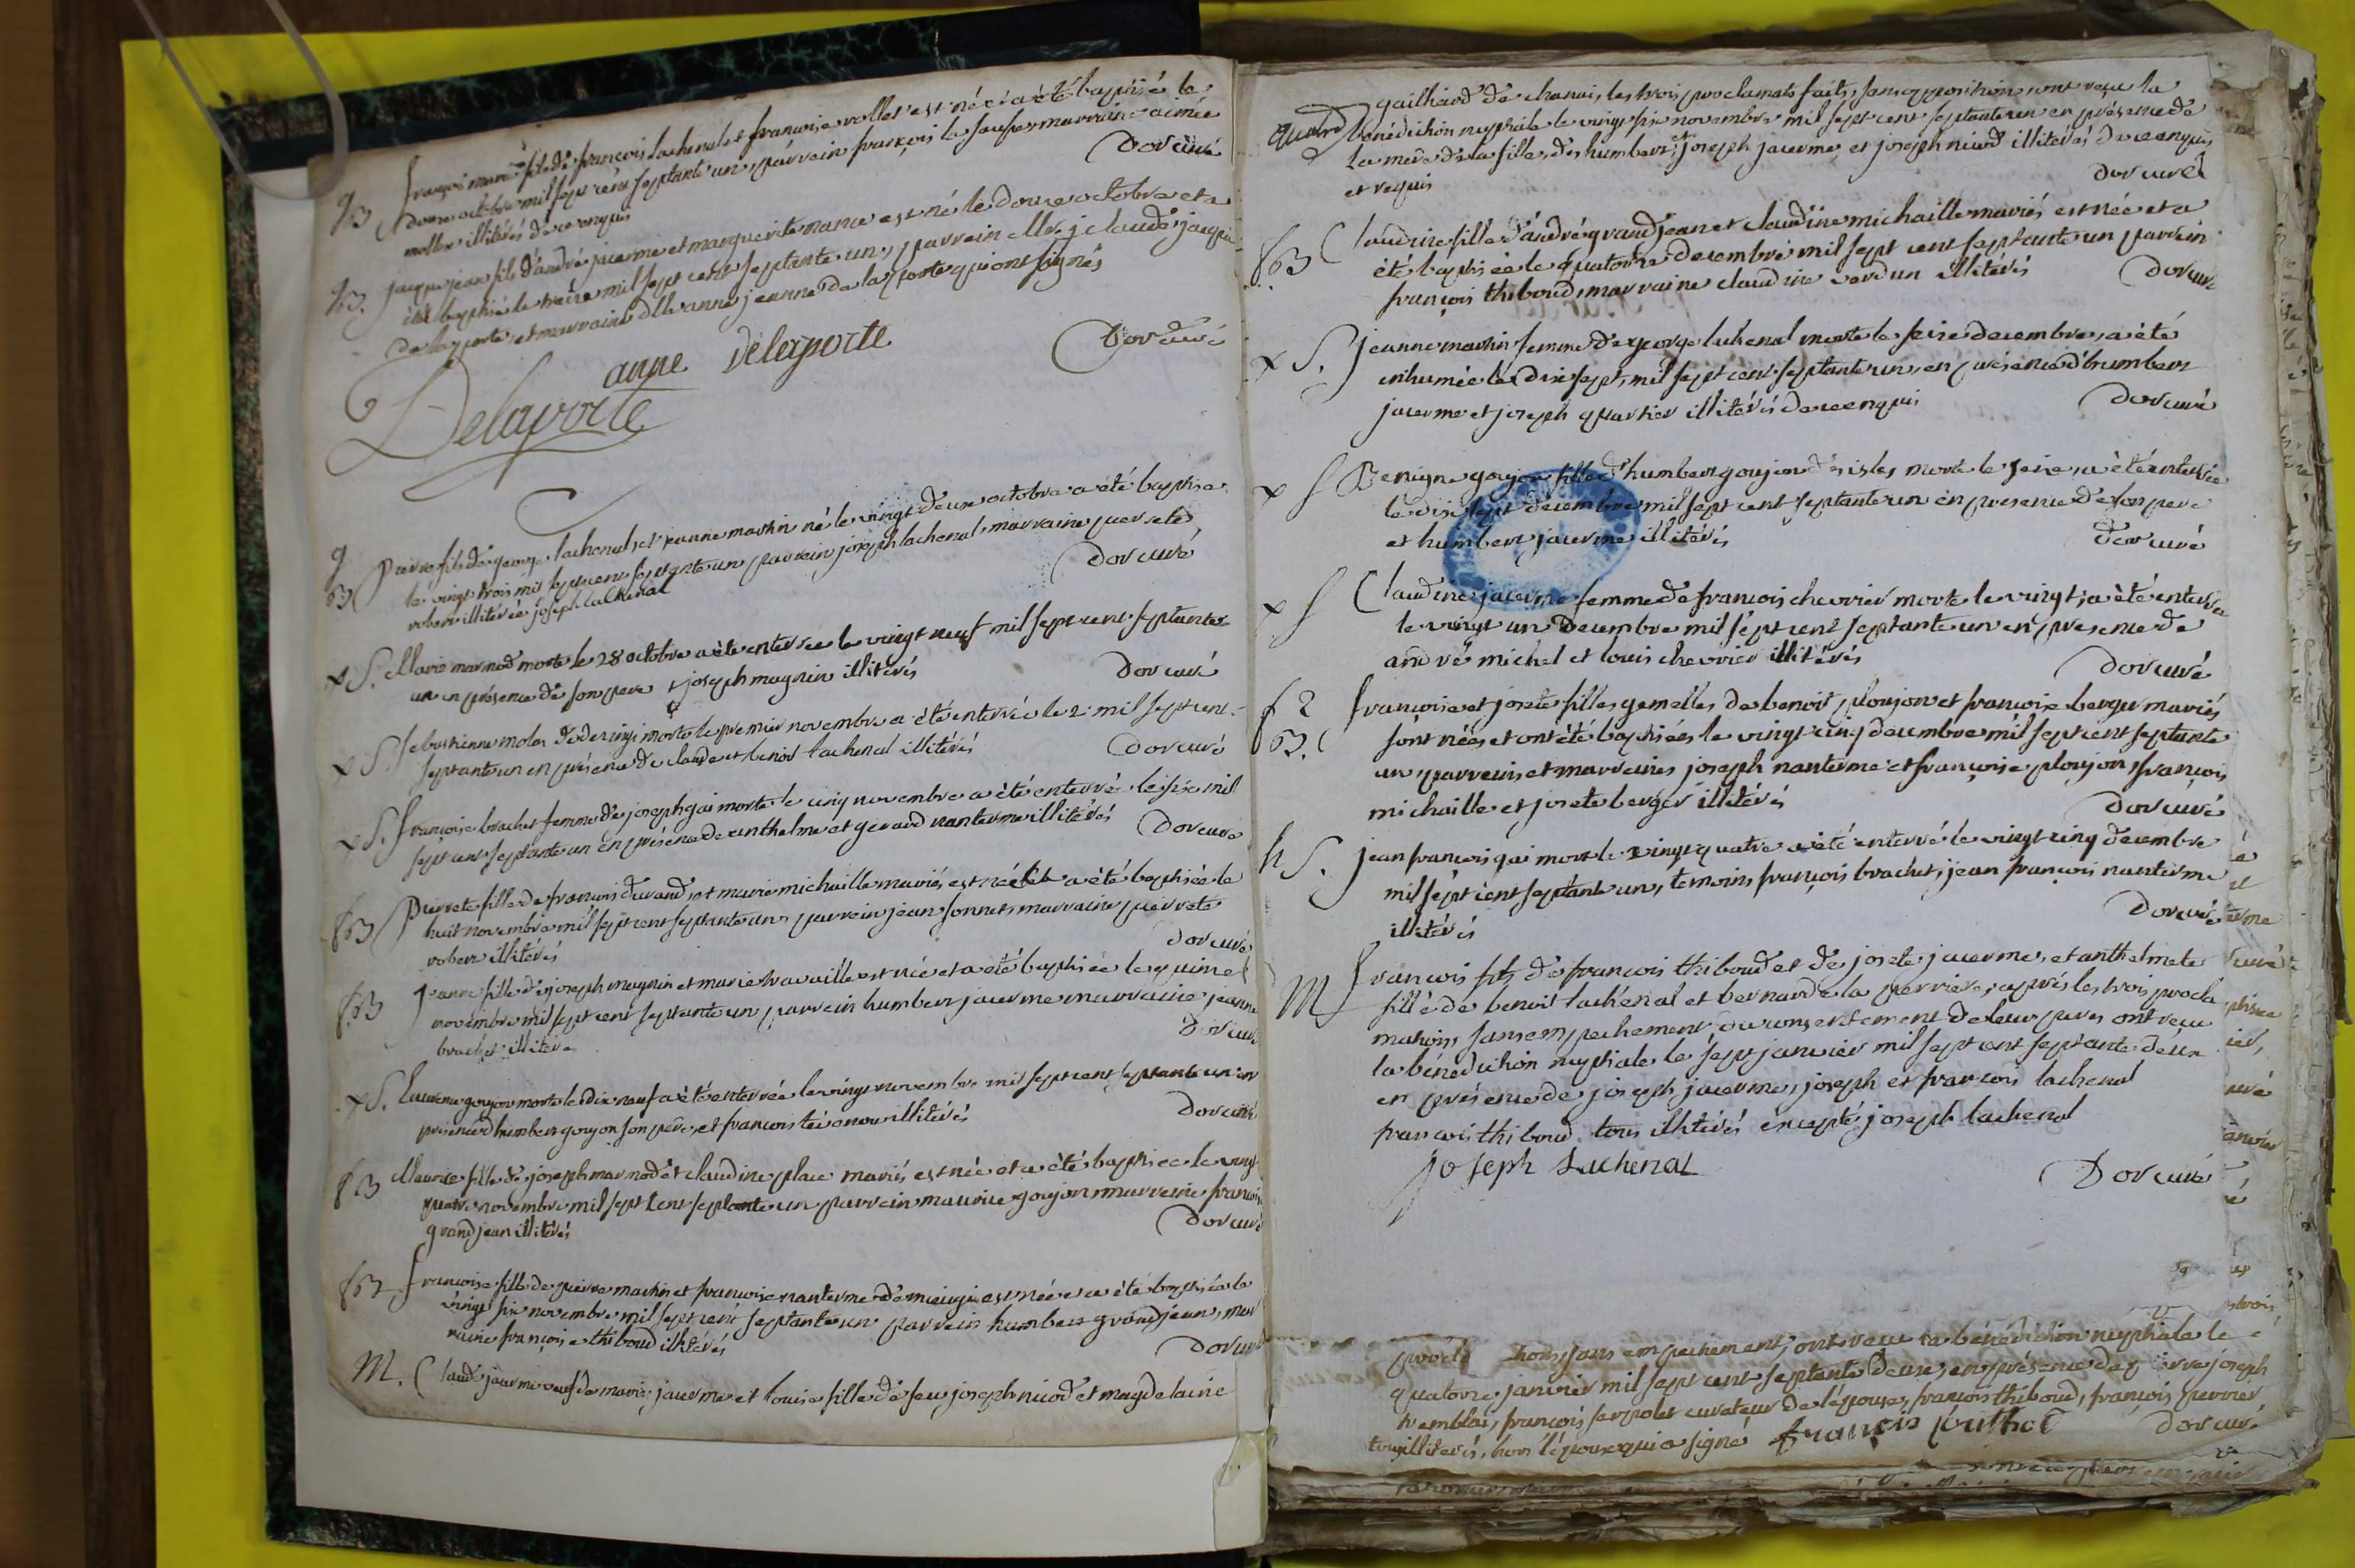 g B françois marie fils de françois lachenal et françoise vollet est né et a été baptisé le
douze octobre mil sept cent septante un, parrain françois marraine aimée
mollex illitérés de ce enquis Dor curé
g B. jacque jean fils d'andré jacerme et marguerite nance est né le douze octobre et a
été baptisé le treize mil sept cent septante un, parrain Mr. j claude jaque
de la porte, et marraine dlle anne jeanne de la porte qui ont signés
anne delaporte Dor curé
Delaporte
g B pierre fils de george lachenal, et jeanne martin né le vingt deux octobre a été baptisé
le vingt trois mil sept cent septante un parrain joseph lachenal, marraine pierrete
robert illitérée joseph lachenal Dor curé
x S. Marie marnod morte le 28 octobre a été enterrée le vingt neuf mil sept cent septante
un en présence de son pere et joseph magnin illitérés Dor curé
x S. sebastienne molex morte le premier novembre a été enterrée le 2 mil sept cent
septante un en présence de claude et benoit lachenal illitérés Dor curé
x S. françoise brachet femme de joseph gai morte le cinq novembre a été enterré le six mil
sept cent septante un en présence de anthelme et gerard nanterme illitérés Dor curé
f B pierrete fille de françois durand, et marie michaille mariés est née et a été baptisée le
huit novembre mil sept cent septante un, parrain jean sonnet, marraine pierrete
robert illitérés Dor curé
f B jeanne fille de joseph magnin et marie travaille est née et a été baptisée le quinze
novembre mil sept cent septante un parrain humbert jacerme marraine jeanne
brachet illitéré Dor curé
x S. Laurence goujon morte le dix neuf a été enterrée le vingt novembre mil sept cent septante un en
présence d'humbert goujon son père, et françois illitérés Dor curé
f B Maurise fille de joseph marnod et claudine place mariés est née et a été baptisée le vingt
quatre novembre mil sept cent septante un parrain maurice goujon, marraine françoise
grandjean illitérés Dor curé
f B françoise fille de pierre martin et françoise nanterme est née et a été baptisée le
vingt six novembre mil sept cent septante un parrain humbert grandjean, mar
raine françoise thiboud illitérés Dor curé
M. Claude jacerme veuf de marie jacerme et Louise fille de feu joseph nicod et magdelaine
gailliard de chanai, les trois proclamats faits, sans opposition, ont reçu la
bénédiction nuptiale le vingt six novembre mil sept cent septante un en présence de
La mere de la fille, d'humbert, et joseph jacerme, et joseph nicod illitérés de ce enquis
et requis Dor curé
f B Claudine fille d'andré grandjean et claudine michaille mariés est née et a
été baptisée le quatorze decembre mil sept cent septante un parrein
françois thiboud, marraine claudine verdun illitérés Dor curé
x S. jeanne martin femme de george lachenal morte le seize decembre, a été
inhumée le dix sept, mil sept cent septante un, en présence d'humbert
jacerme et joseph quartier illitérés de ce enquis Dor curé
x S Benigne goujon fille d'humbert goujon des isles morte le seize, a été enterrée
le dix sept decembre mil sept cent septante un en presence de son pere
et humbert jacerme illitérés Dor curé
x S Claudine jacerme femme de françois chevrier morte le vingt, a été enterrée
le vingt un decembre mil sept cent septante un en presence de
andré michel et louis chevrier illitérés Dor curé
f 2 françoise et josete filles gemelles de benoit ploujon et françoise berger mariés
B. sont nées et ont été baptisées le vingt cinq decembre mil sept cent septante
un, parreins et marreines joseph nanterme et françoise ploujon, françois
michaille et josete berger illitérés Dor curé
h S. jean françois gai mort le vingt quatre a été enterré le vingt cinq decembre
mil sept cent septante un, temoins françois brachet, jean françois nanterme
illitérés Dor curé
M françois fils de françois thiboud et de josete jacerme, et anthelmete
fille de benoit lachenal et bernarde la perriere, après les trois procla
mations, sans empechement, du consentement de leur peres ont reçu
la bénédiction nuptiale, le sept janvier mil sept cent septante deux
en présence de joseph jacerme, joseph et françois lachenal
françois thiboud tous illitérés éxcepté joseph lachenal
Joseph Lachenal Dor curé
procla tions, sans empechement, ont reçu la bénédiction nuptiale le
quatorze janvier mil sept cent septante deux, en présence de pierre joseph
tremblai, françois serpolet curateur de l'épouse, françois thiboud, françois perrier
tous illiterés, hors l'époux qui a signé françois Dor curé